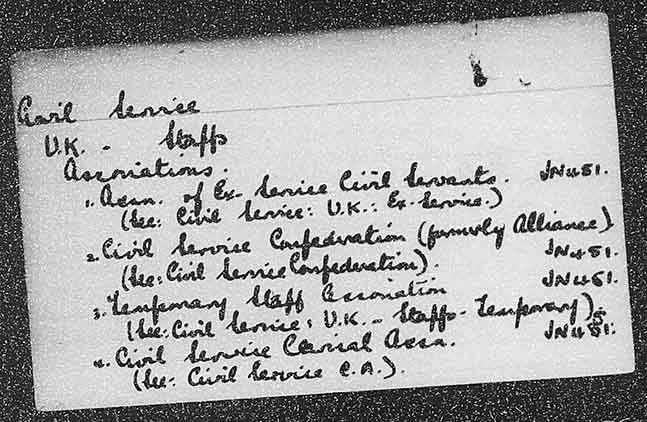 Civil Service
U.K. - Staffs
Associations.
1. Assn. of Ex-Service Civil Servants. JN451.
(See: Civil Service: U.K.: Ex-Service.)
2. Civil Service Confederation (formerly Alliance)
(See: Civil Service Confederation). JN451.
3. Temporary Staff Association JN451.
(See: Civil Service: U.K. - Staffs - Temporary)
4. Civil Service Clerical Assn. JN451.
(See: Civil Service C.A.).